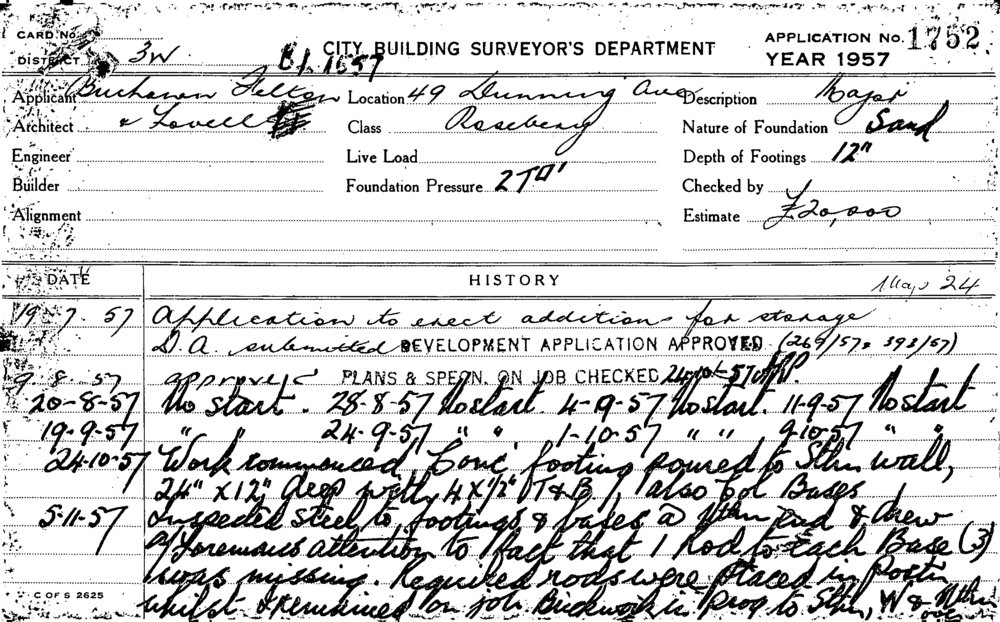 CARD No.
CITY BUILDING SURVEYOR'S DEPARTMENT
APPLICATION No. 1752
DISTRICT 3W
B.I. 1657
YEAR 1957
Applicant Buchanan Felton Location 49 Dunning Ave Description Major
Architect & Lovell Class Rosebery Nature of Foundation Sand
Engineer Live Load Depth of Footings 12"
Builder Foundation Pressure 2T□' Checked by
Alignment Estimate £20,000
DATE HISTORY Map 24
19 7. 57 Application to erect addition for storage
D.A. submitted DEVELOPMENT APPLICATION APPROVED (269/57. 393/57)
9. 8. 57 approved PLANS & SPECN. ON JOB CHECKED 24-10-57
20-8-57 No start. 28-8-57 No start 4-9-57 No start. 11-9-57 No start
19-9-57 " " 24-9-57 " " 1-10-57 " " 9-10-57 " "
24-10-57 Work commenced, Conc footing poured to Sthn wall,
24" x 12" deep with 4 x ½" T & B, also Col Bases
5-11-57 Inspected steel to footings & bases @ Nthn end & drew
Foremans attention to fact that 1 Rod to each Base (3)
was missing. Required rods were placed in postn
whilst I remained on job Brickwork in prog to Sthn, W & Nthn
C OF S 2625